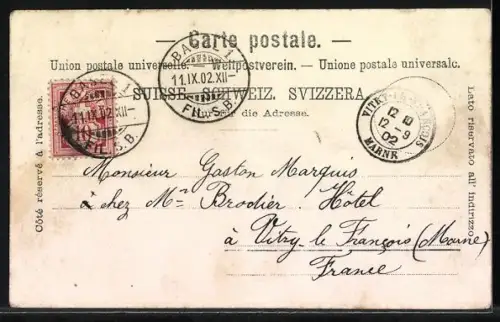 — Carte postale. —
Union postale universelle. — Weltpostverein. — Unione postale universale.
SUISSE. SCHWEIZ. SVIZZERA.
die Adresse.
Côté réservé à l'adresse.
Lato riservato all' indirizzo.
10
BASEL
11.IX.02.XII-
FIL.S.B.
BASEL
11.IX.02.XII-
FIL.S.B.
VITRY-LE-FRANÇOIS
12
12 -9
02
MARNE
Monsieur Gaston Marquis
à chez Mr Brodier. Hôtel
à Vitry-le François (Marne)
France